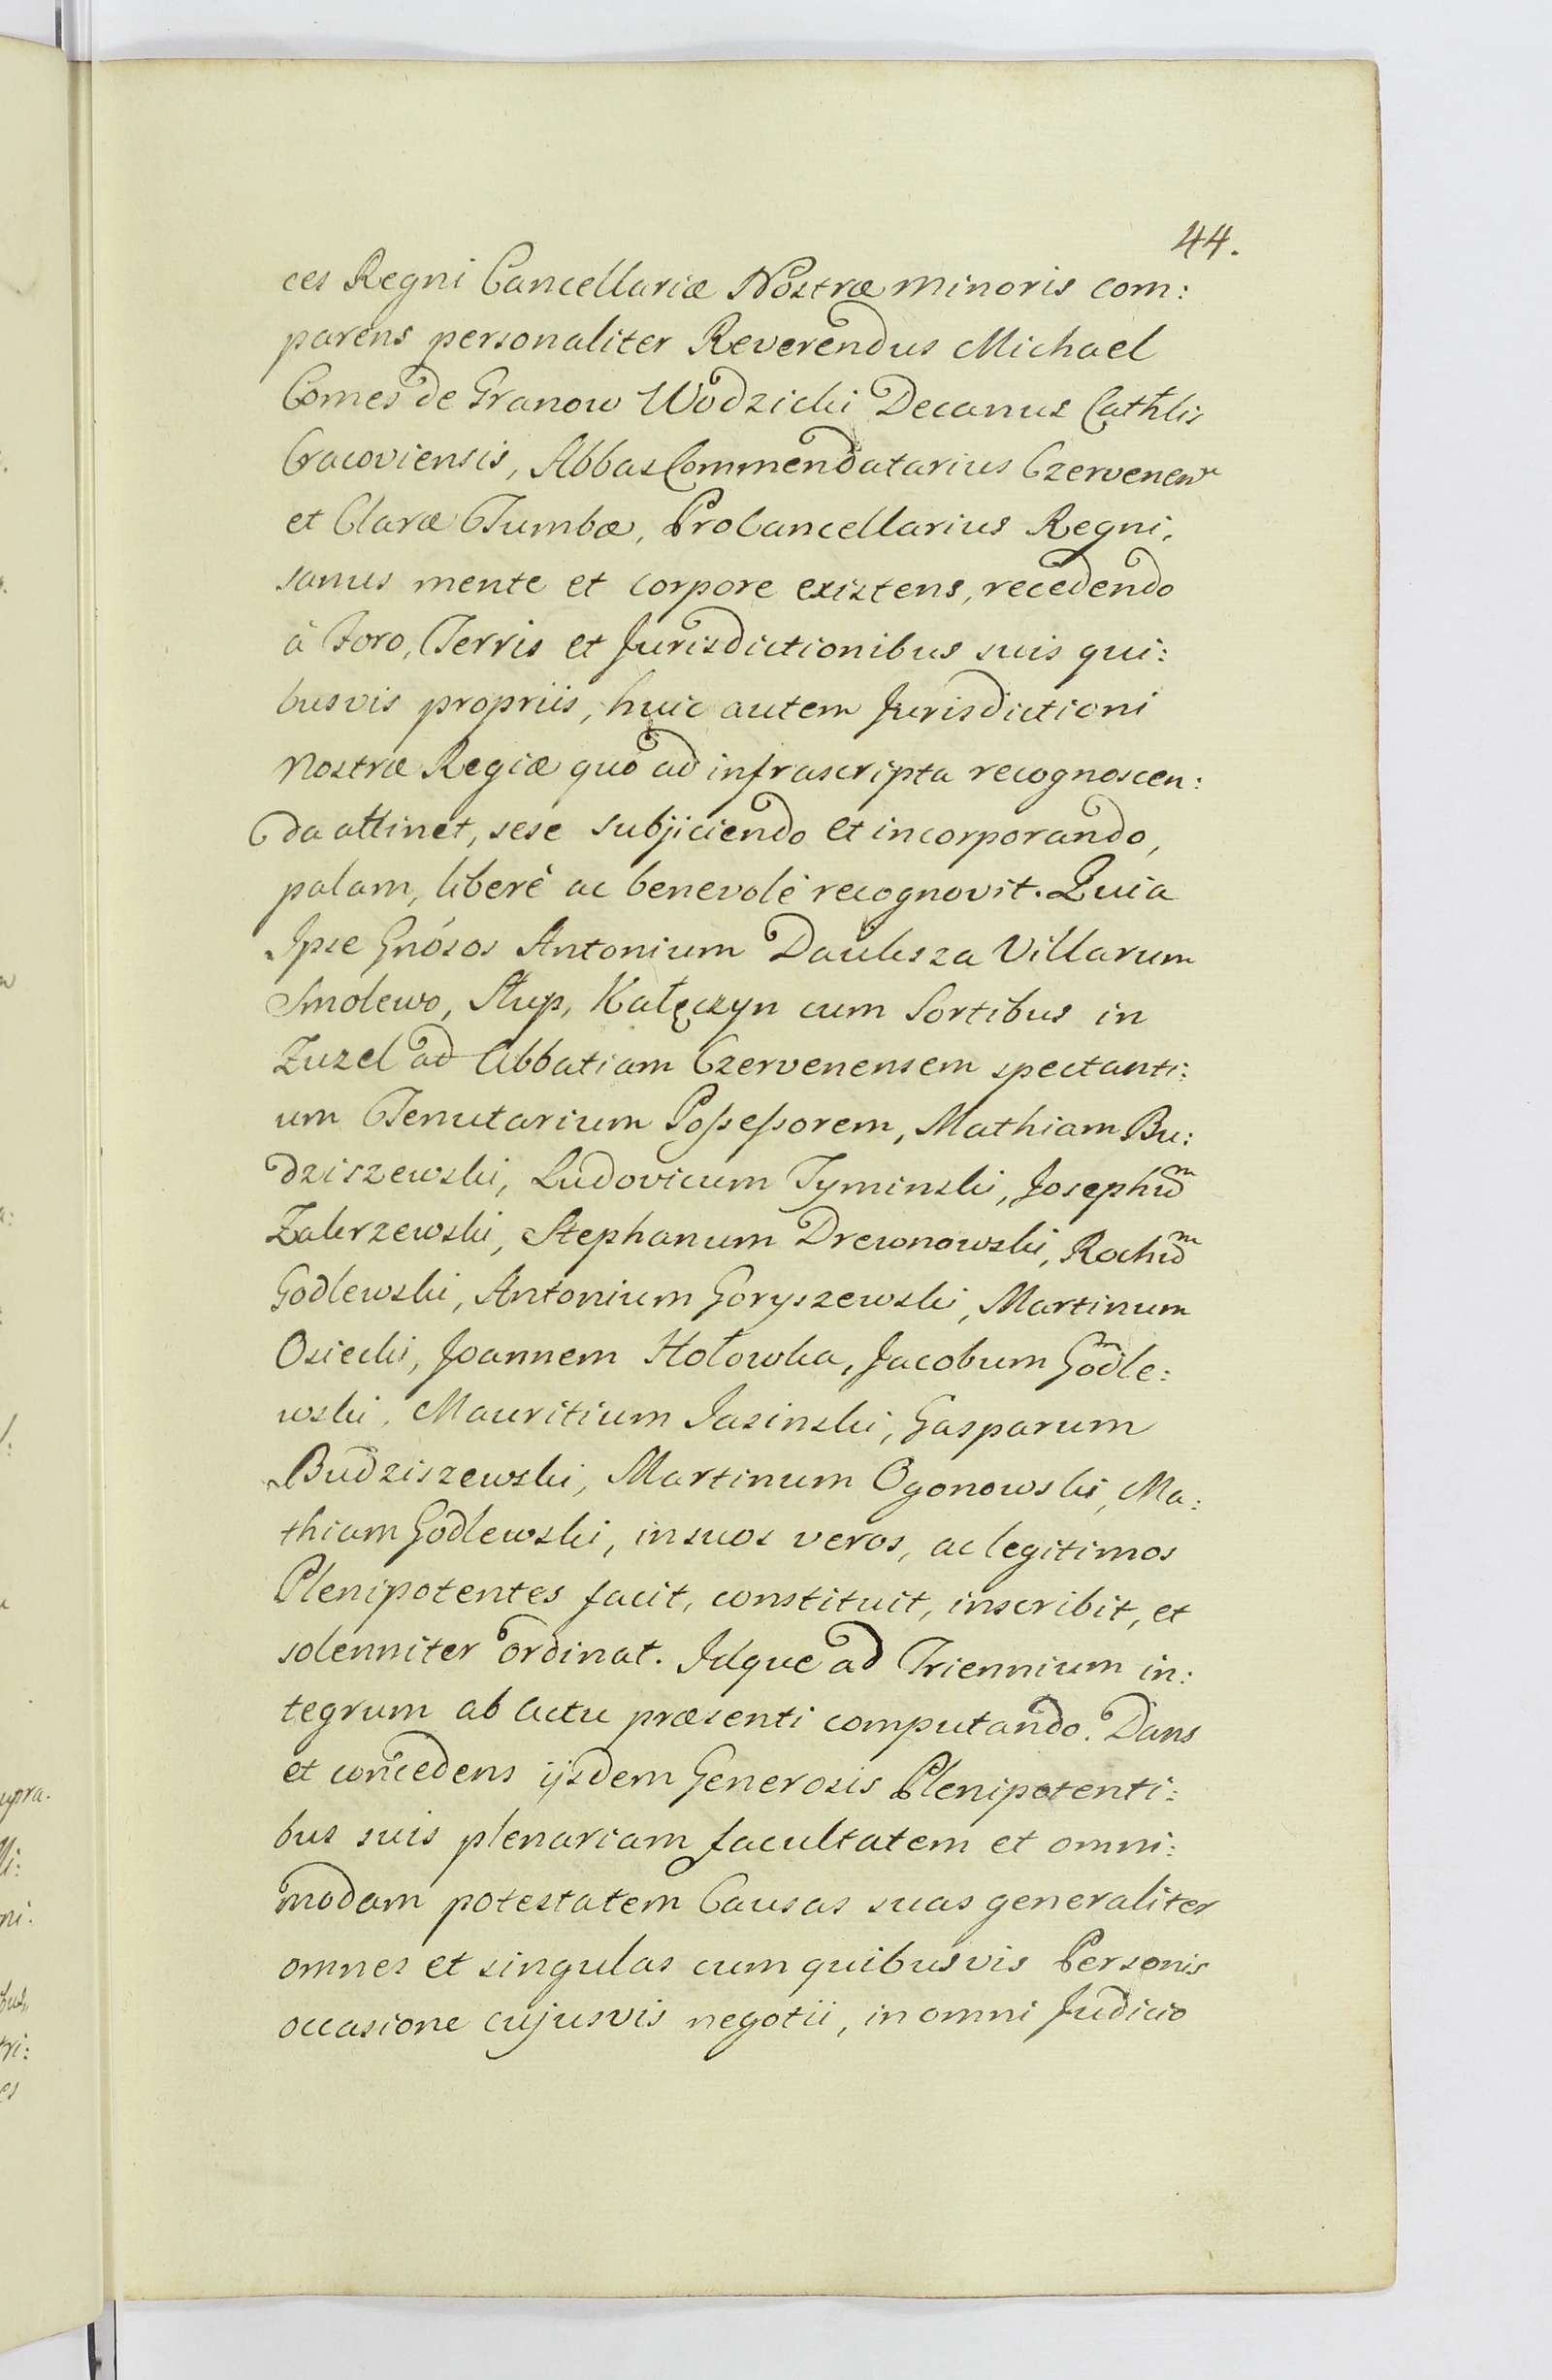 44.
ces Regni Cancellariæ Nostræ Minoris com:
parens personaliter Reverendus Michael
Comes de Granow Wodzicki Decanus Cathlis
Cracoviensis, Abbas Commendatarius Czervenen
et Claræ Tumbæ, ProCancellarius Regni,
sanus mente et corpore existens, recedendo
à Foro, Terris et Jurisdictionibus suis qui:
busvis propriis, huic autem Jurisdictioni
Nostræ Regiæ quó ad infrascripta recognoscen:
da attinet, sese subjiciendo et incorporando,
palam, liberè ac benevolè recognovit. Quia
Ipse Gnósos Antonium Dauksza Villarum
Smolewo, Słup, Kałęczyn cum Sortibus in
Zuzel ad Abbatiam Czervenensem spectanti:
um Tenutarium Poſseſsorem, Mathiam Bu:
dziszewski, Ludovicum Tyminski, Josephum
Zakrzewski, Stephanum Drewnowski, Rochum
Godlewski, Antonium Goryszewski, Martinum
Osiecki, Joannem Hołowka, Jacobum Godle:
wski, Mauritium Jasinski, Gasparum
Budziszewski, Martinum Ogonowski, Ma:
thiam Godlewski, in suos veros, ac legitimos
Plenipotentes facit, constituit, inscribit, et
solenniter ordinat. Idque ad Triennium in:
tegrum ab Actu præsenti computando. Dans
et concedens ijsdem Generosis Plenipotenti:
bus suis plenariam facultatem et omni:
modam potestatem Causas suas generaliter
omnes et singulas cum quibusvis Personis
occasione cujusvis negotii, in omni Judicio